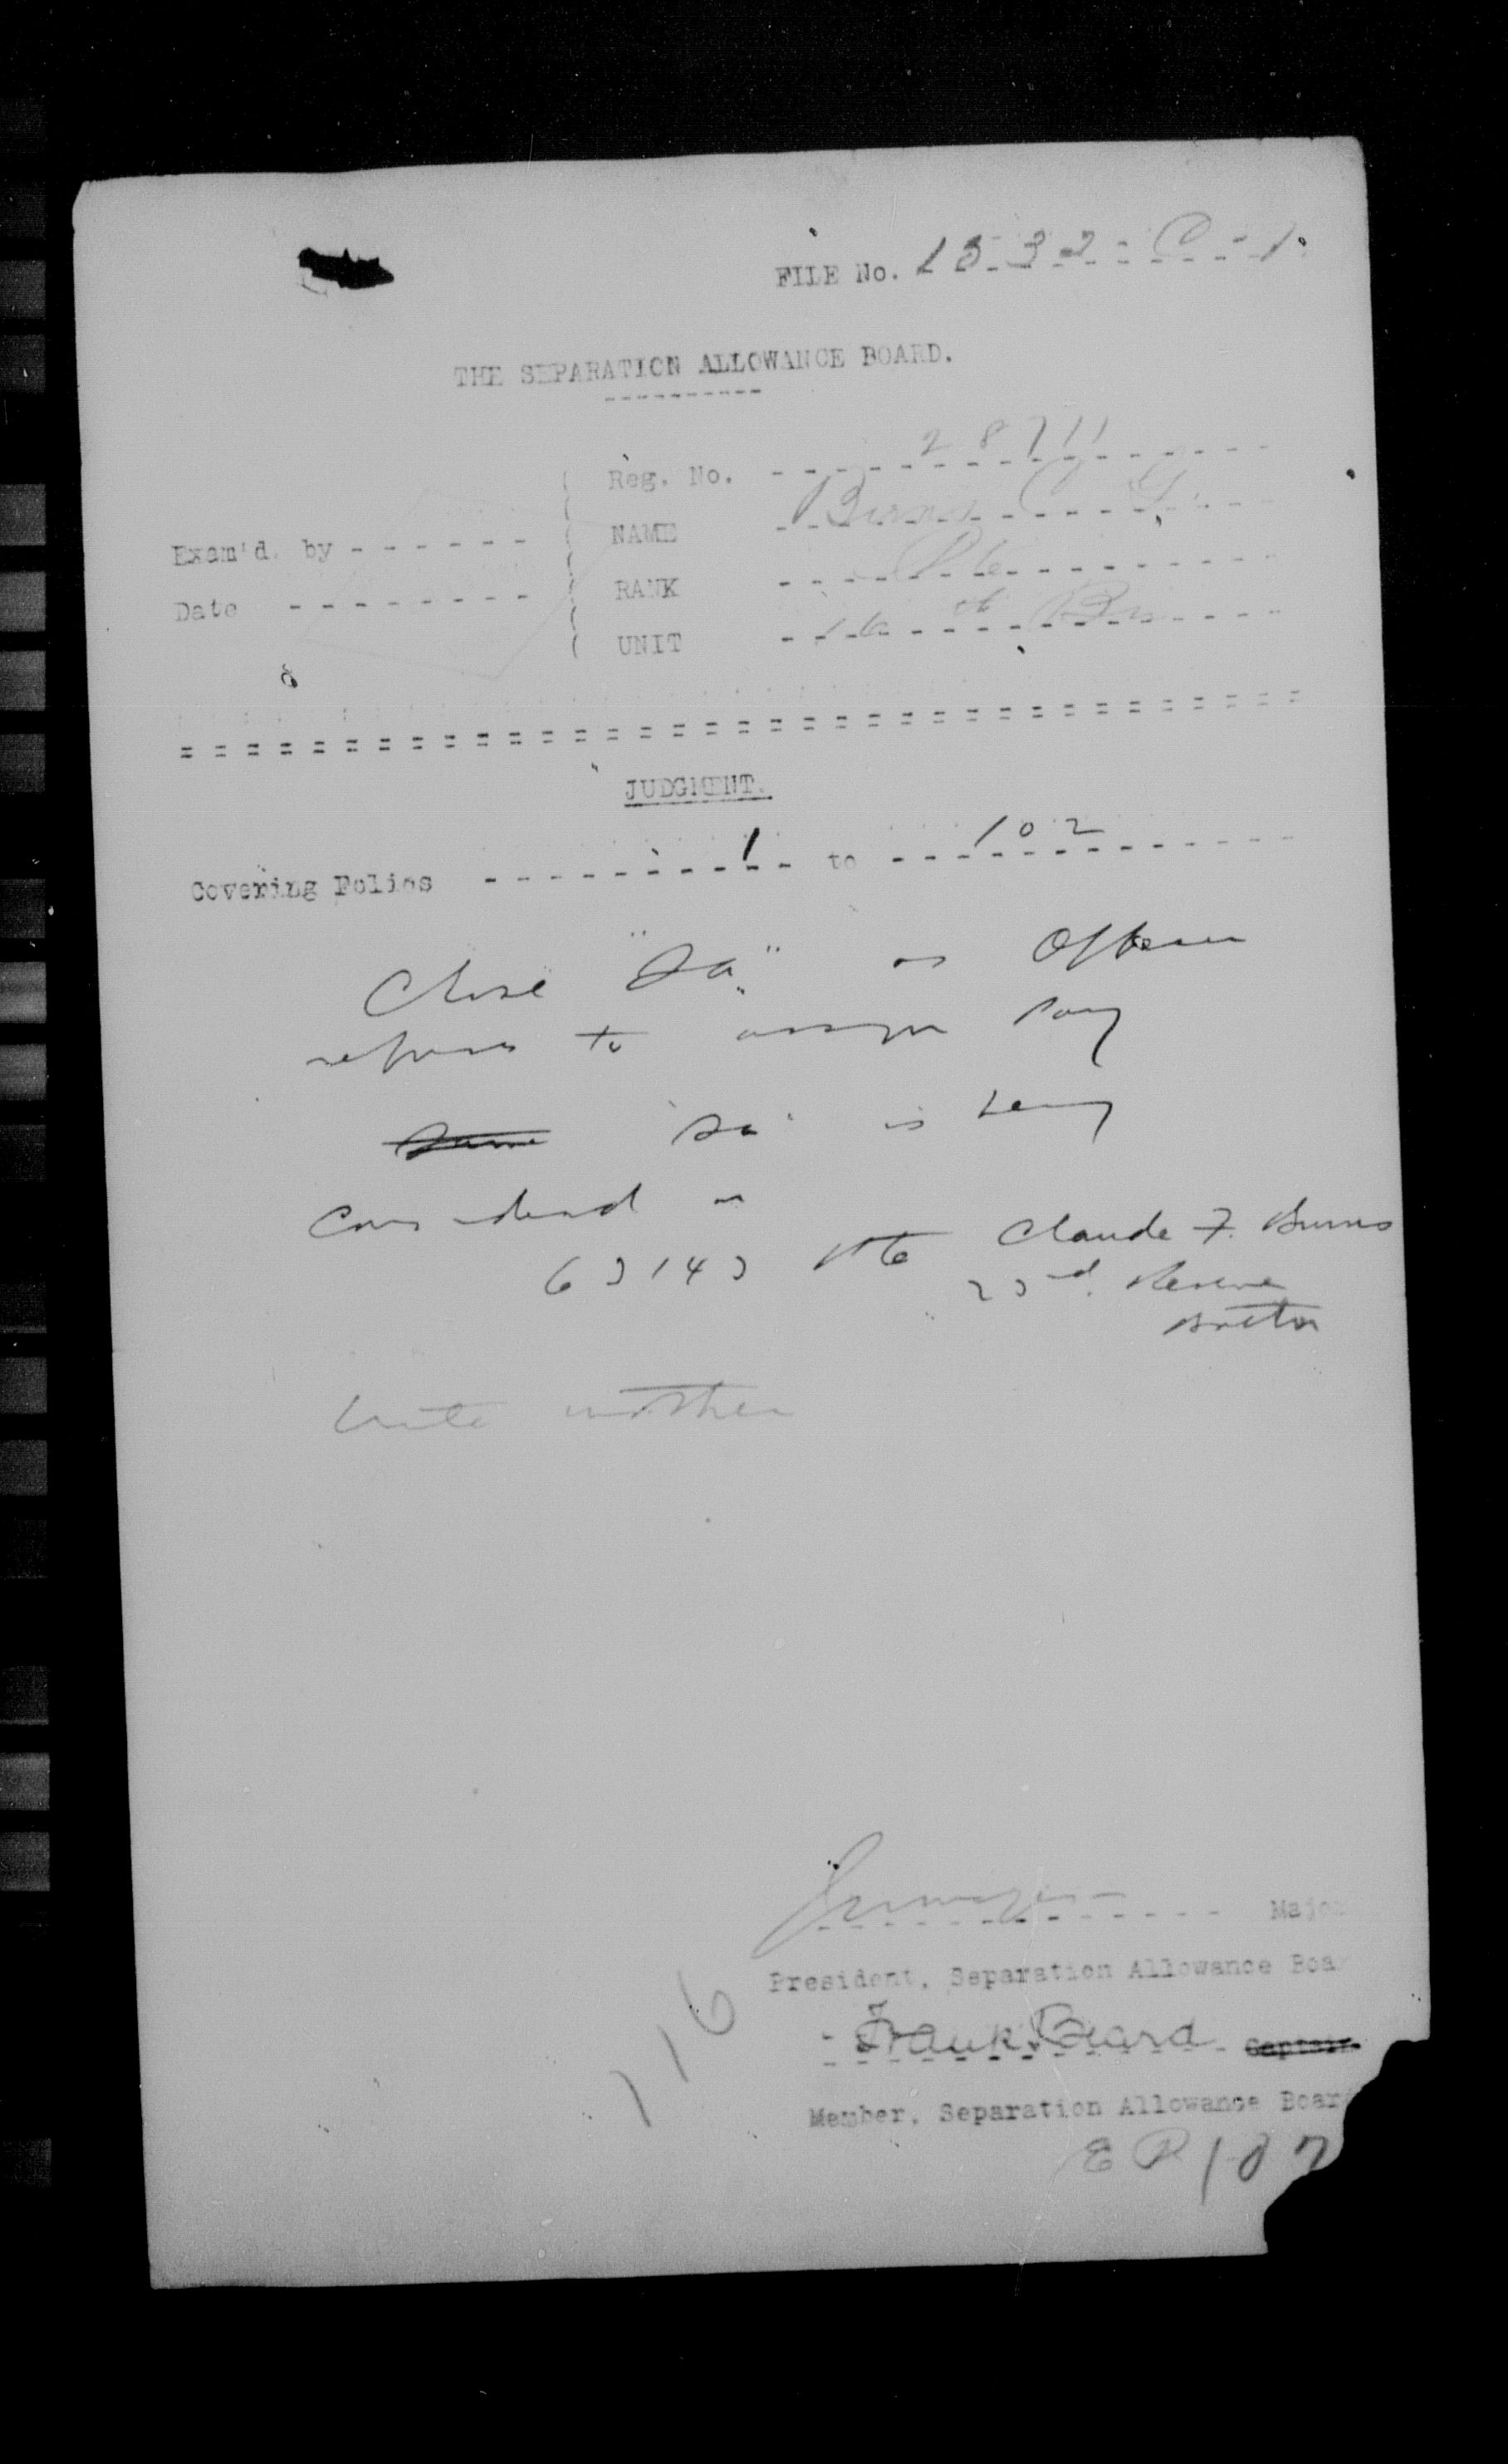 FILE No. 1532-C-1.
THE SEPARATION ALLOWANCE BOARD.
Reg. No. 28711
NAME Burns C.
Exam'd. by
RANK Pte
Date
UNIT 16th Bn
JUDGMENT.
Covering Folios 1 to 102
Close "SA" as
refuses to assign pay
Same "SA" is being
Considered on
63143 Pte Claude F. Burns
23rd Reserve
Battn
Write mother
Major
President, Separation Allowance Boa
Frank Beard Captain
116
Member, Separation Allowance Boar
EP 107